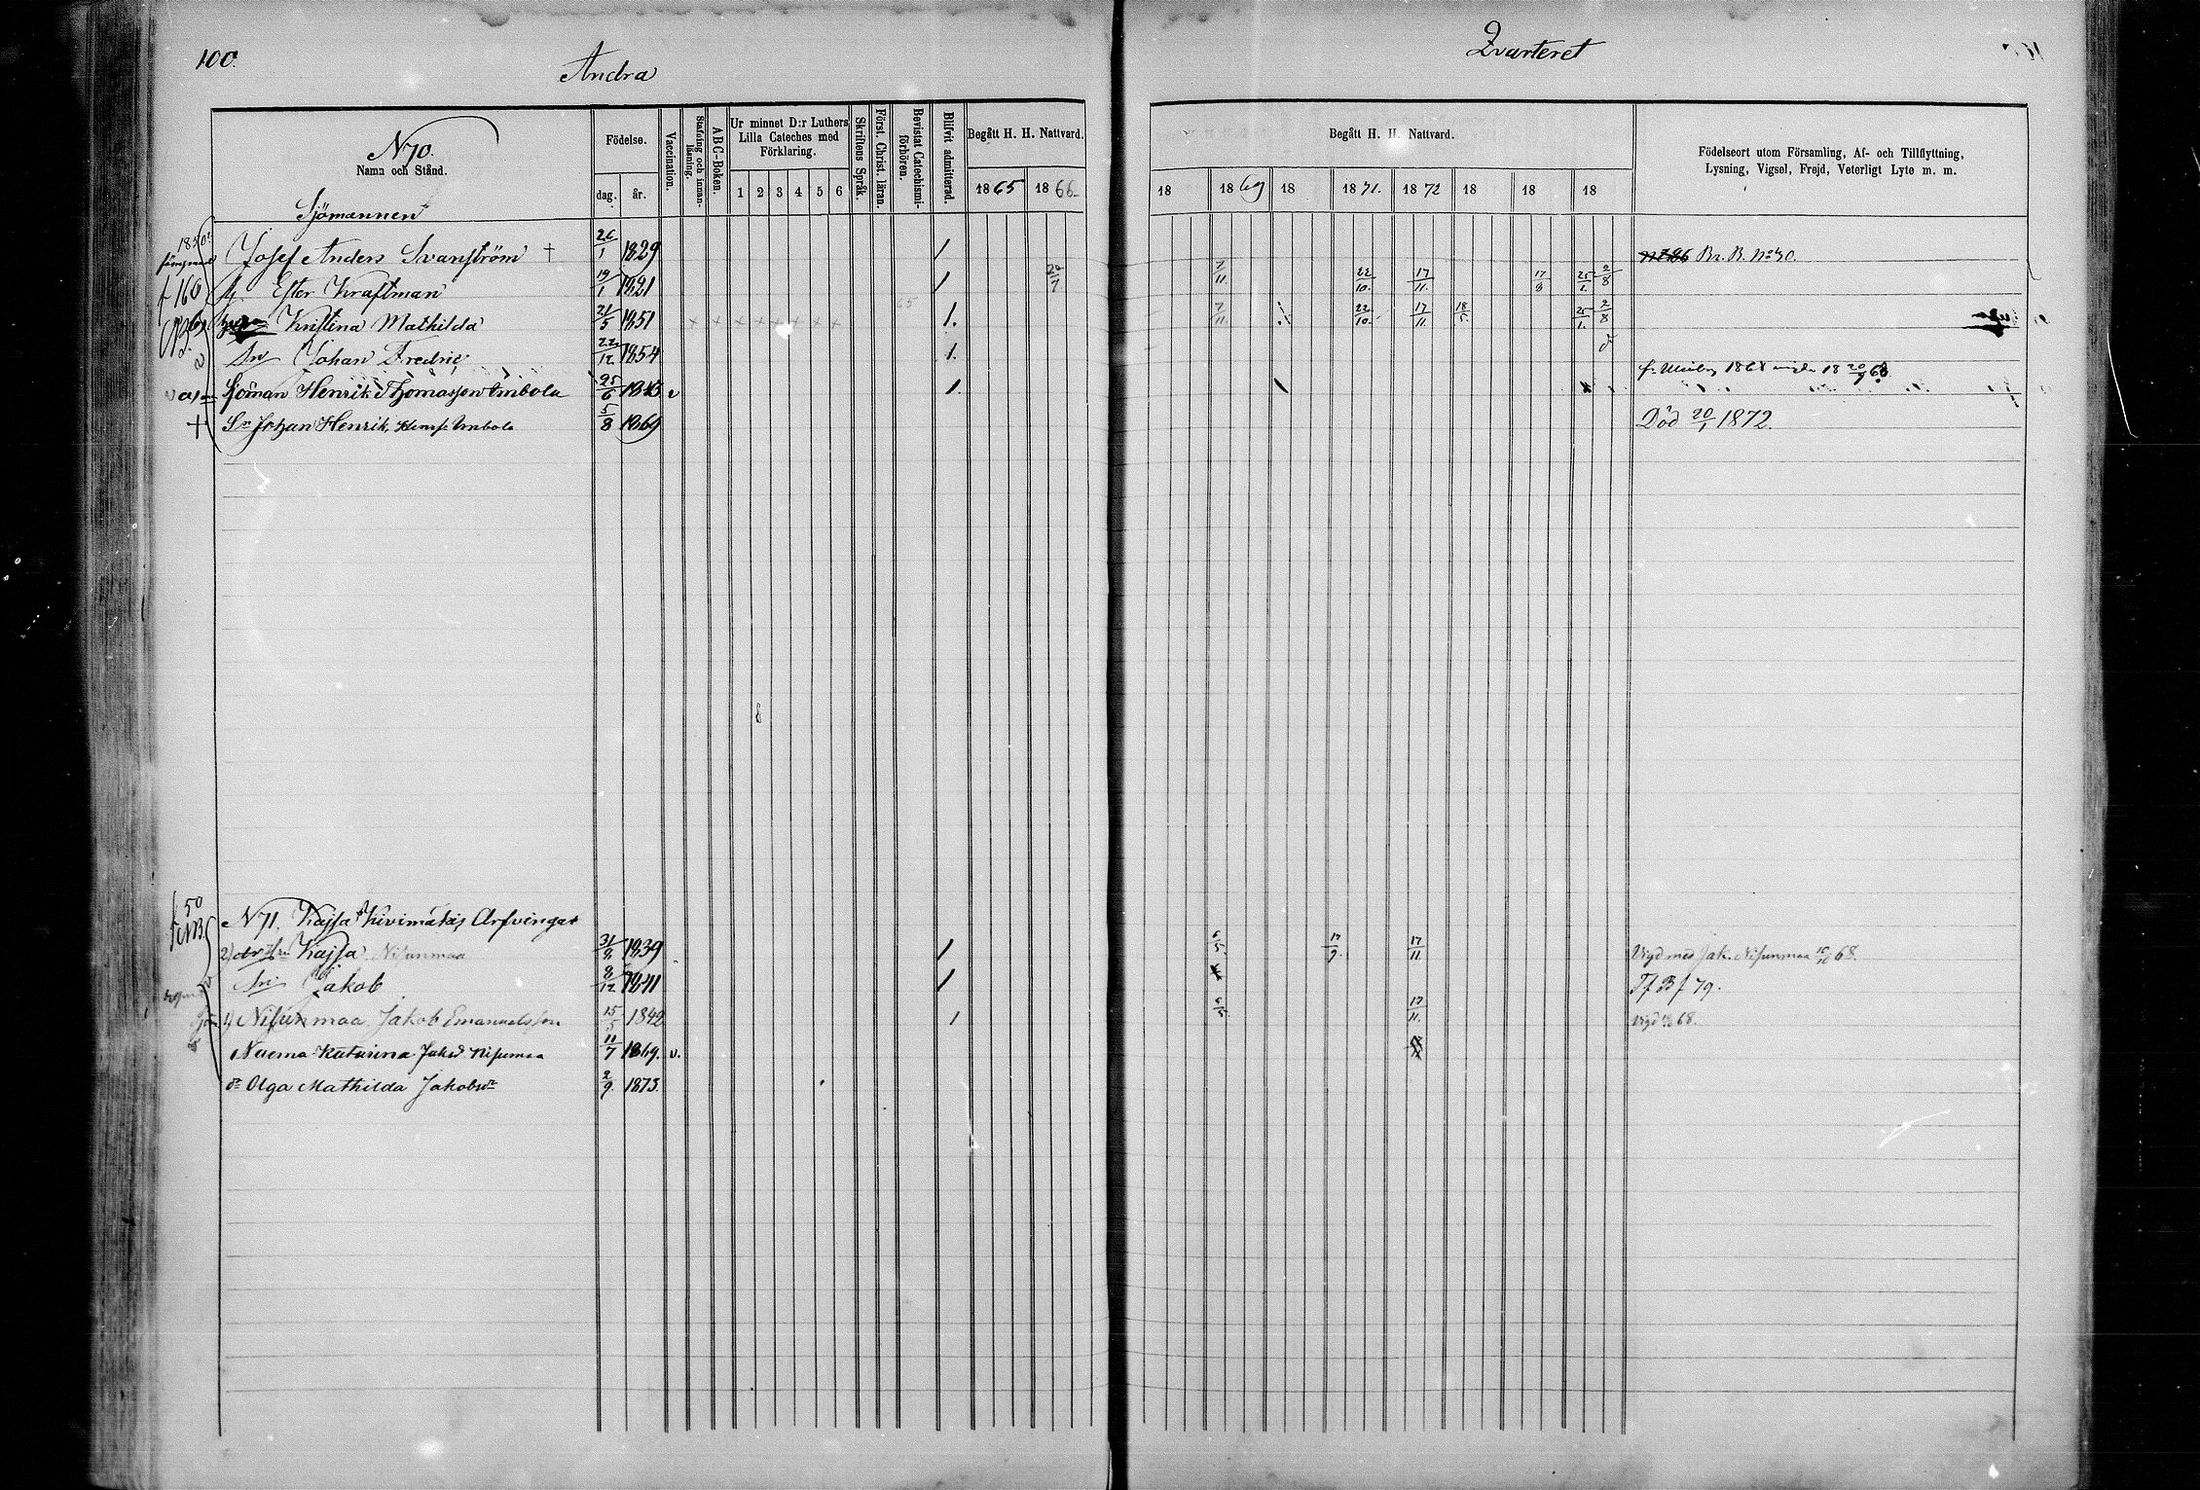 100.
Andra
Qvarteret
N 70.
Namn och Stånd.
Födelse.
dag. år.
Vaccination.
Stafning och innan-läsning.
ABC-Boken.
Ur minnet D:r Luthers Lilla Cateches med Förklaring.
1 2 3 4 5 6
Skriftens Språk.
Först. Christ. läran.
Bevistat Catechismi-förhören.
Blifvit admitterad.
Begått H. H. Nattvard.
1865 1866
Begått H. H. Nattvard.
18 1869 18 1871. 1872 18 18 18
Födelseort utom Församling, Af- och Tillflyttning,
Lysning, Vigsel, Frejd, Veterligt Lyte m. m.
Sjömannen
Josef Anders Svanström † 26/1 1829 Br. B. No 30.
f 160 Ester Kraftman 19/1 1821 7/11 22/10. 17/11. 17/8 25/1. 2/8
Kristina Mathilda 21/5 1851 7/11 22/10. 17/11 18/5. 25/1. 2/8
Sn Johan Fredric 22/12 1854
Sjöman Henrik Thomasson Imbola 25/6 1843 v 1868 20/9 68
+ Sn Johan Henrik, Henr. Imbola 5/8 1869 Död 20/1 1872.
f 50
N 71. Kajsa Kivimäkis Arfvingar
2) Kajsa Nisunmaa 31/8 1839 5/5. 17/9. 17/11 Vigd med Jak. Nisunmaa 68.
Sn Jakob 8/12 1841 Tf B f 79.
1) Nisunmaa Jakob Emanuelsson 15/5 1842 5/5. 17/11. Vigd 68.
Naema Katarina Jaksd Nisumaa 11/7 1869. v.
dr Olga Mathilda Jakobsdr 2/9. 1873.